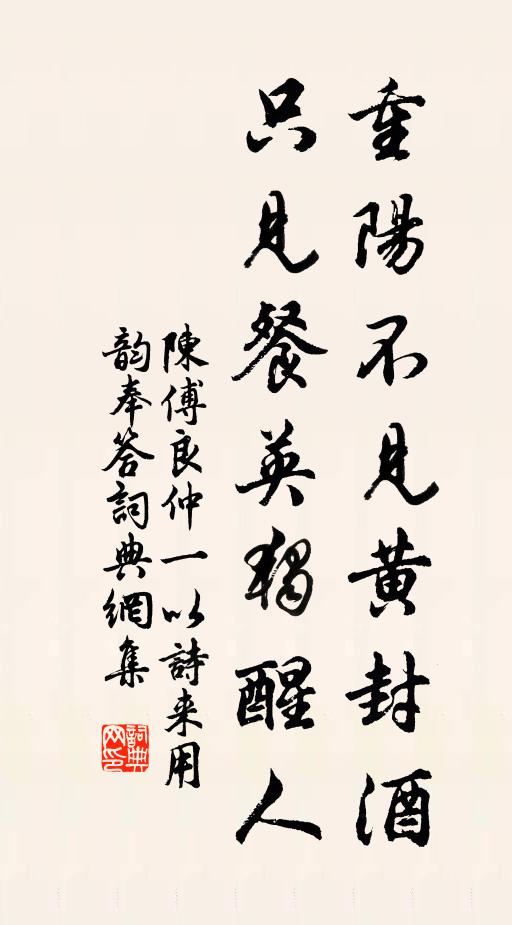 重陽不見黄封酒
只見餐英獨醒人
陳傅良仲一以詩来用
韵奉答詞典網集
詞典
网印